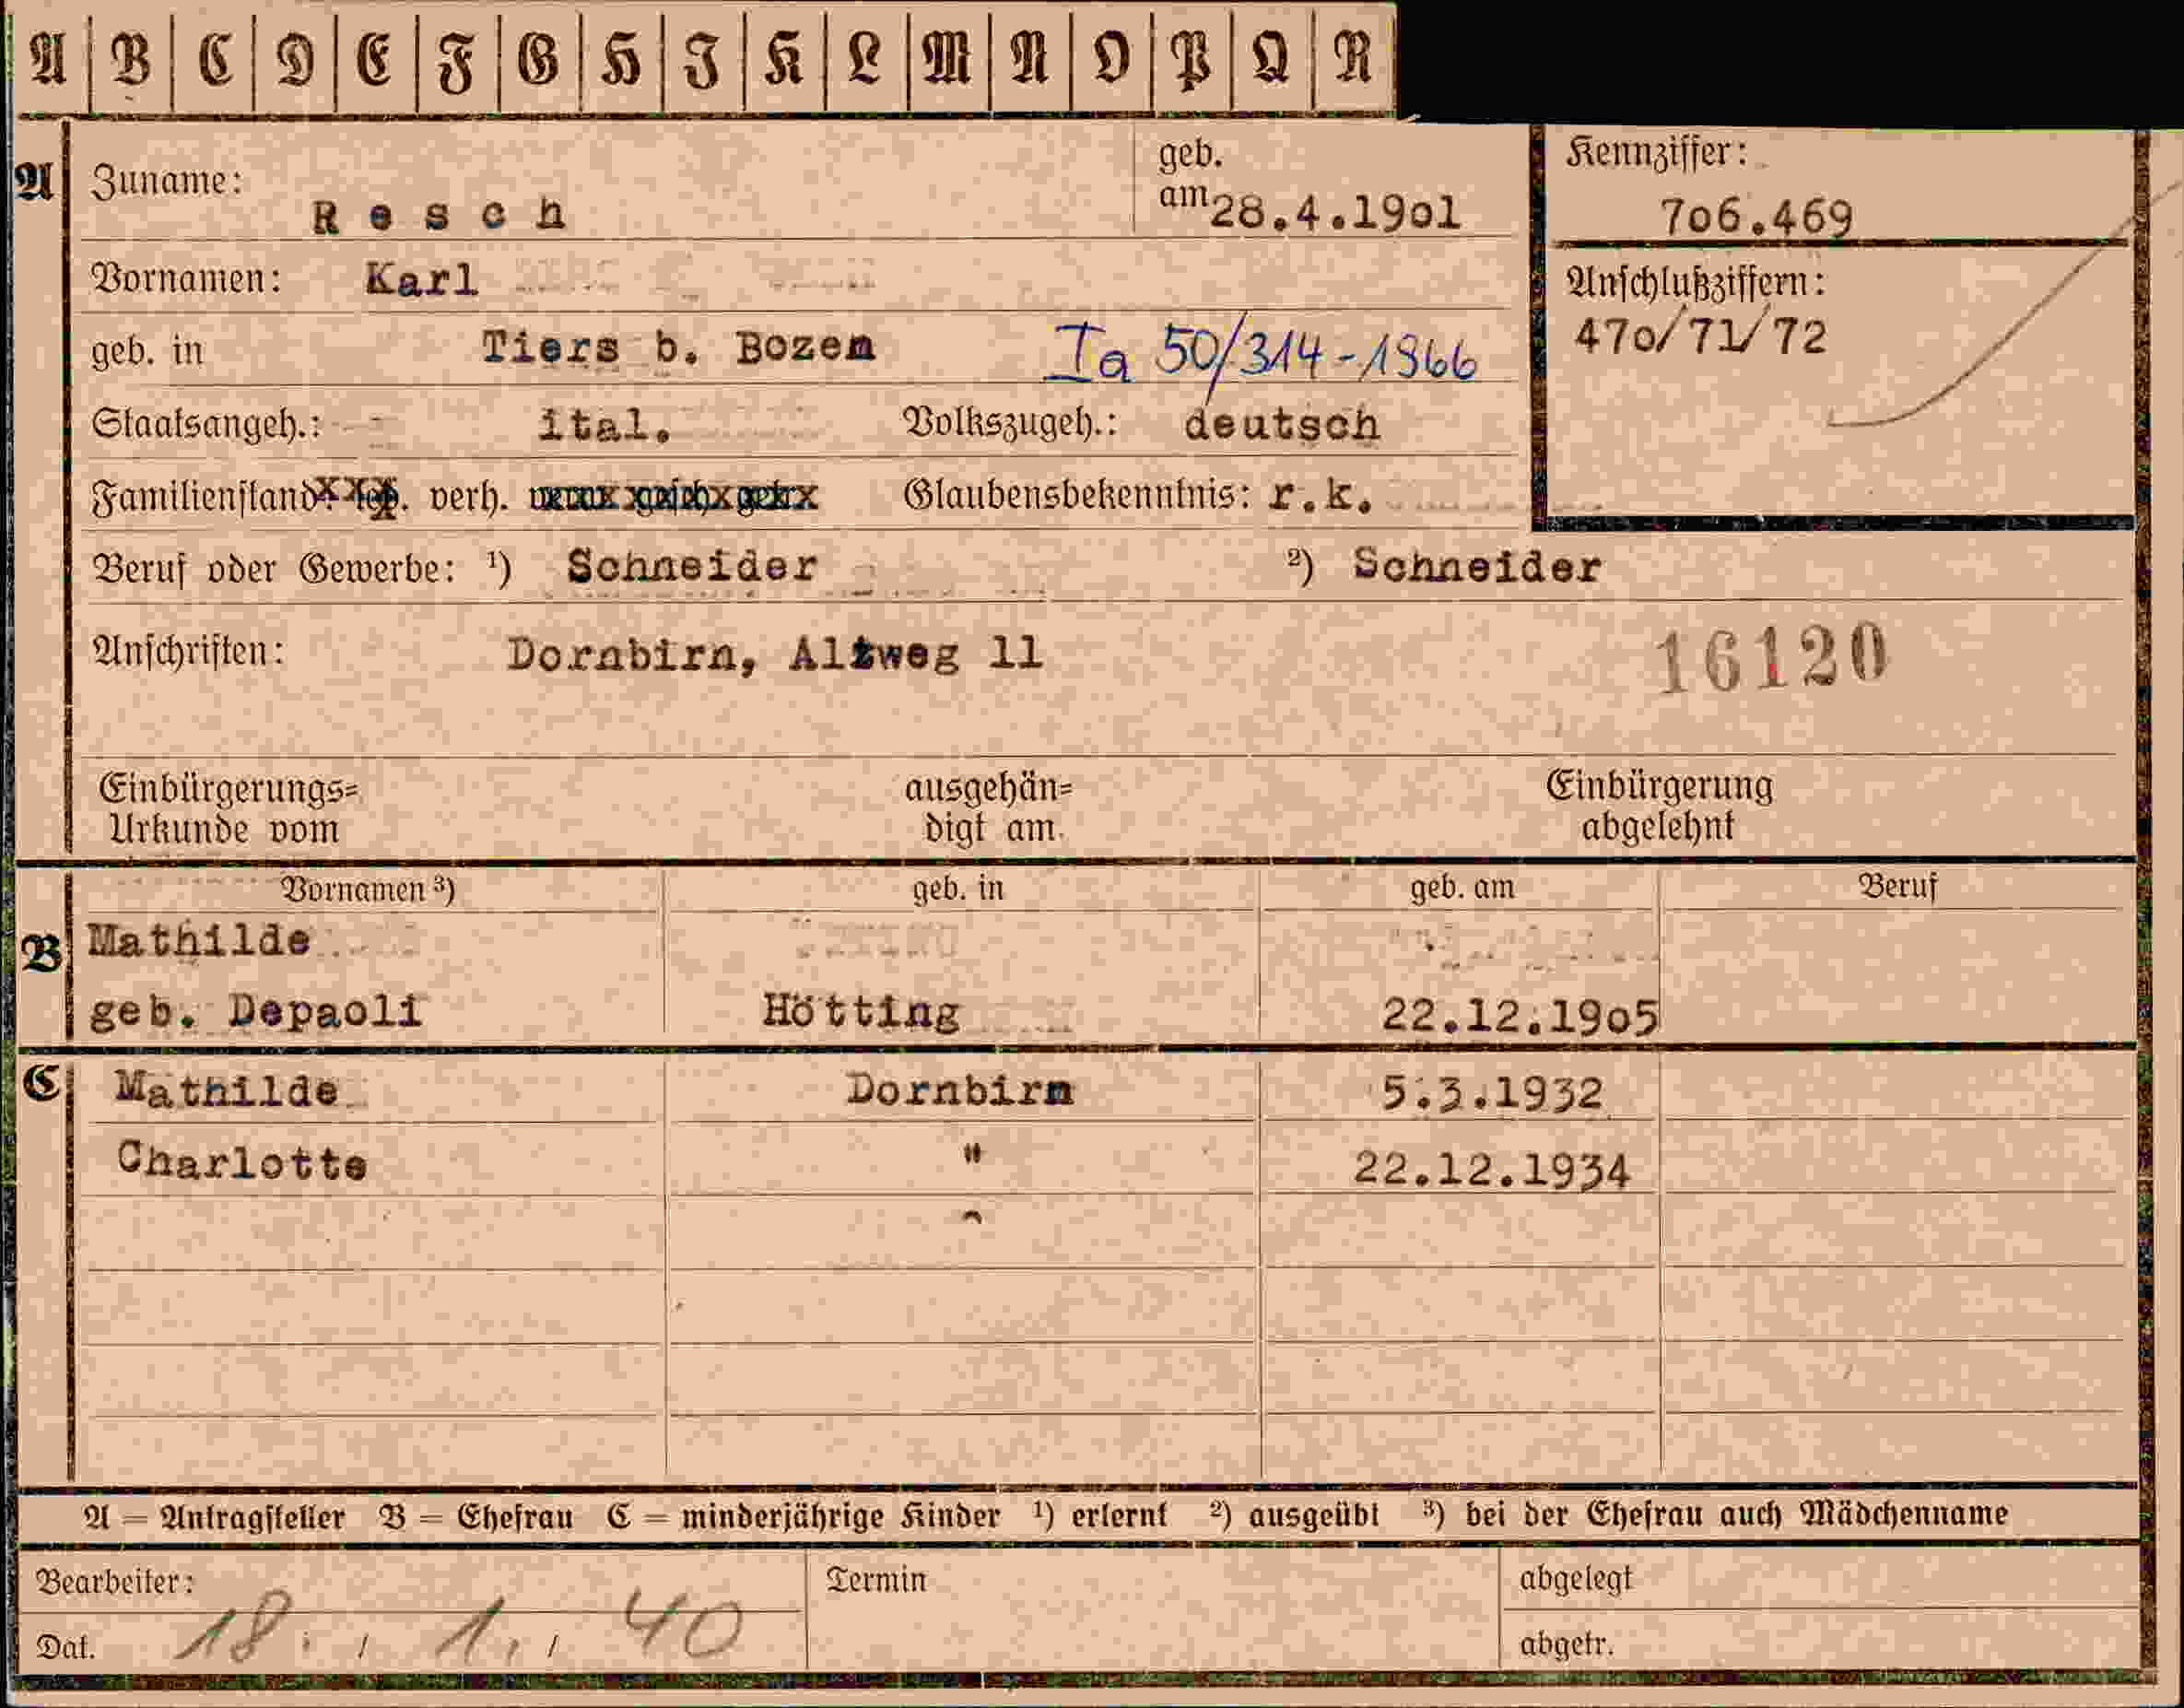 A B C D E F G H I K L M N O P Q R
A Zuname: Resch geb. am 28.4.19o1 Kennziffer: 7o6.469
Vornamen: Karl Anschlußziffern:
geb. in Tiers b. Bozen Ia 50/314-1966 47o/71/72
Staatsangeh.: ital. Volkszugeh.: deutsch
Familienstand: verh. Glaubensbekenntnis: r.k.
Beruf oder Gewerbe: ¹) Schneider ²) Schneider
Anschriften: Dornbirn, Altweg 11 16120
Einbürgerungs= ausgehän= Einbürgerung
Urkunde vom digt am abgelehnt
Vornamen ³) geb. in geb. am Beruf
B Mathilde
geb. Depaoli Hötting 22.12.19o5
C Mathilde Dornbirn 5.3.1932
Charlotte " 22.12.1934
A = Antragsteller B = Ehefrau C = minderjährige Kinder ¹) erlernt ²) ausgeübt ³) bei der Ehefrau auch Mädchenname
Bearbeiter: Termin abgelegt
Dat. 18. / 1. / 40 abgetr.